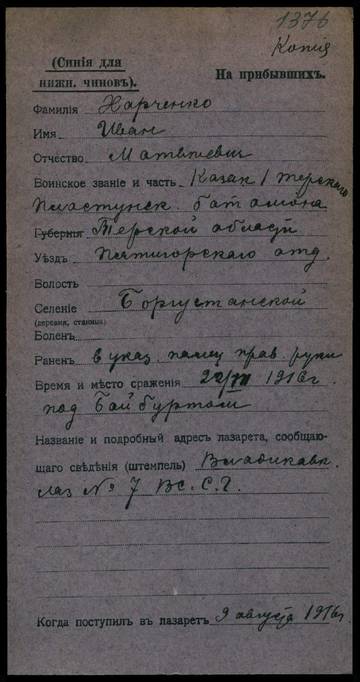 1376
Копія
(Синія для
нижн. чиновъ).
На прибывшихъ.
Фамилія Харченко
Имя Иван
Отчество Матвѣевич
Воинское званіе и часть Казак 1 терскаго
Пластунск. батальона
Губернія Терской области
Уѣздъ Пятигорскаго отд.
Волость
Селеніе Боргустанской
(деревня, станица)
Боленъ
Раненъ в указ. палец прав. руки
Время и мѣсто сраженія 20/VII 1916 г.
под Байбуртом
Названіе и подробный адресъ лазарета, сообщаю-
щаго свѣдѣнія (штемпель) Владикавк.
лаз № 7 В.С.Г.
Когда поступилъ въ лазаретъ 9 августа 1916 г.